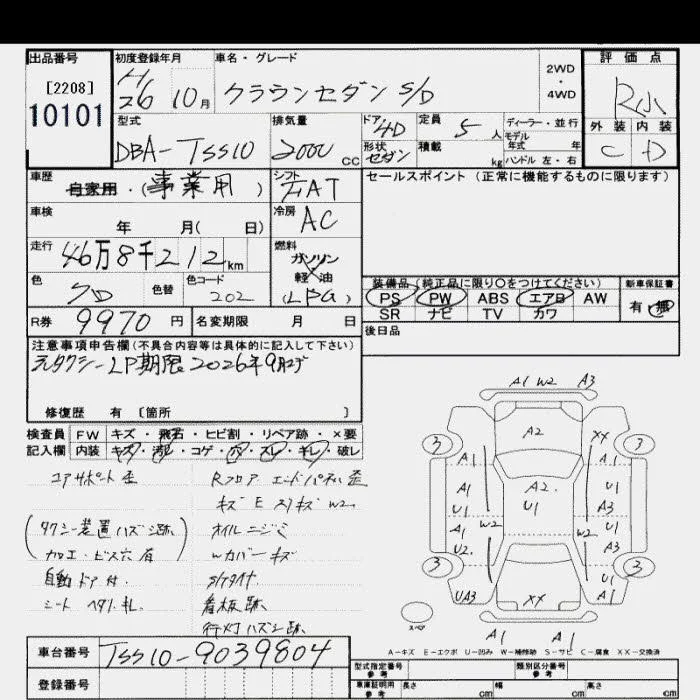 出品番号
[2208]
10101
初度登録年月
H26 10月
車名・グレード
クラウンセダン S/D
2WD
・
4WD
評価点
R小
外装 内装
C D
型式
DBA-TSS10
排気量
2000 CC
ドア 4D
形状 セダン
定員 5 人
積載 kg
ディーラー・並行
モデル年式 年
ハンドル 左・右
車歴
自家用・(事業用)
シフト
FAT
セールスポイント (正常に機能するものに限ります)
車検
年 月( 日)
冷房
AC
走行
46万8千212km
燃料
ガソリン
軽油
(LPG)
色
色替
色コード
202
装備品(純正品に限り○をつけてください)
PS PW ABS エアB AW
SR ナビ TV カワ
新車保証書
有・無
R券 9970 円
名変期限 月 日
後日品
注意事項申告欄(不具合内容等は具体的に記入して下さい)
元タクシー LP期限 2026年9月
修復歴 有 [箇所 ]
検査員 FW キズ・飛石・ヒビ割・リペア跡・×要
記入欄 内装 キズ・汚レ・コゲ・穴・スレ・キレ・破レ
コアサポート歪
Rフロアエンドパネル歪
キズ E スリキズ W2
(タクシー装置ハズシ跡
加工・ビス穴有)
オイルニジミ
Wカバーキズ
自動ドア付
シートヘタリ・札
看板跡
行灯ハズシ跡
A1 W2 A3
A2
XX
3 3
A1 A1
A1 A2 U1
U1 U1 A3
A1 W2 W2 U1
U2 A3
3 3
U1
UA3 XX A1
スペア
A1 A1
A-キズ E-エクボ U-凹み W-補修跡 S-サビ C-腐食 XX-交換済
車台番号 TSS10-9039804
登録番号
型式指定番号 参考
類別区分番号 参考
車庫証明用 参考 長さ cm 幅 cm 高さ cm